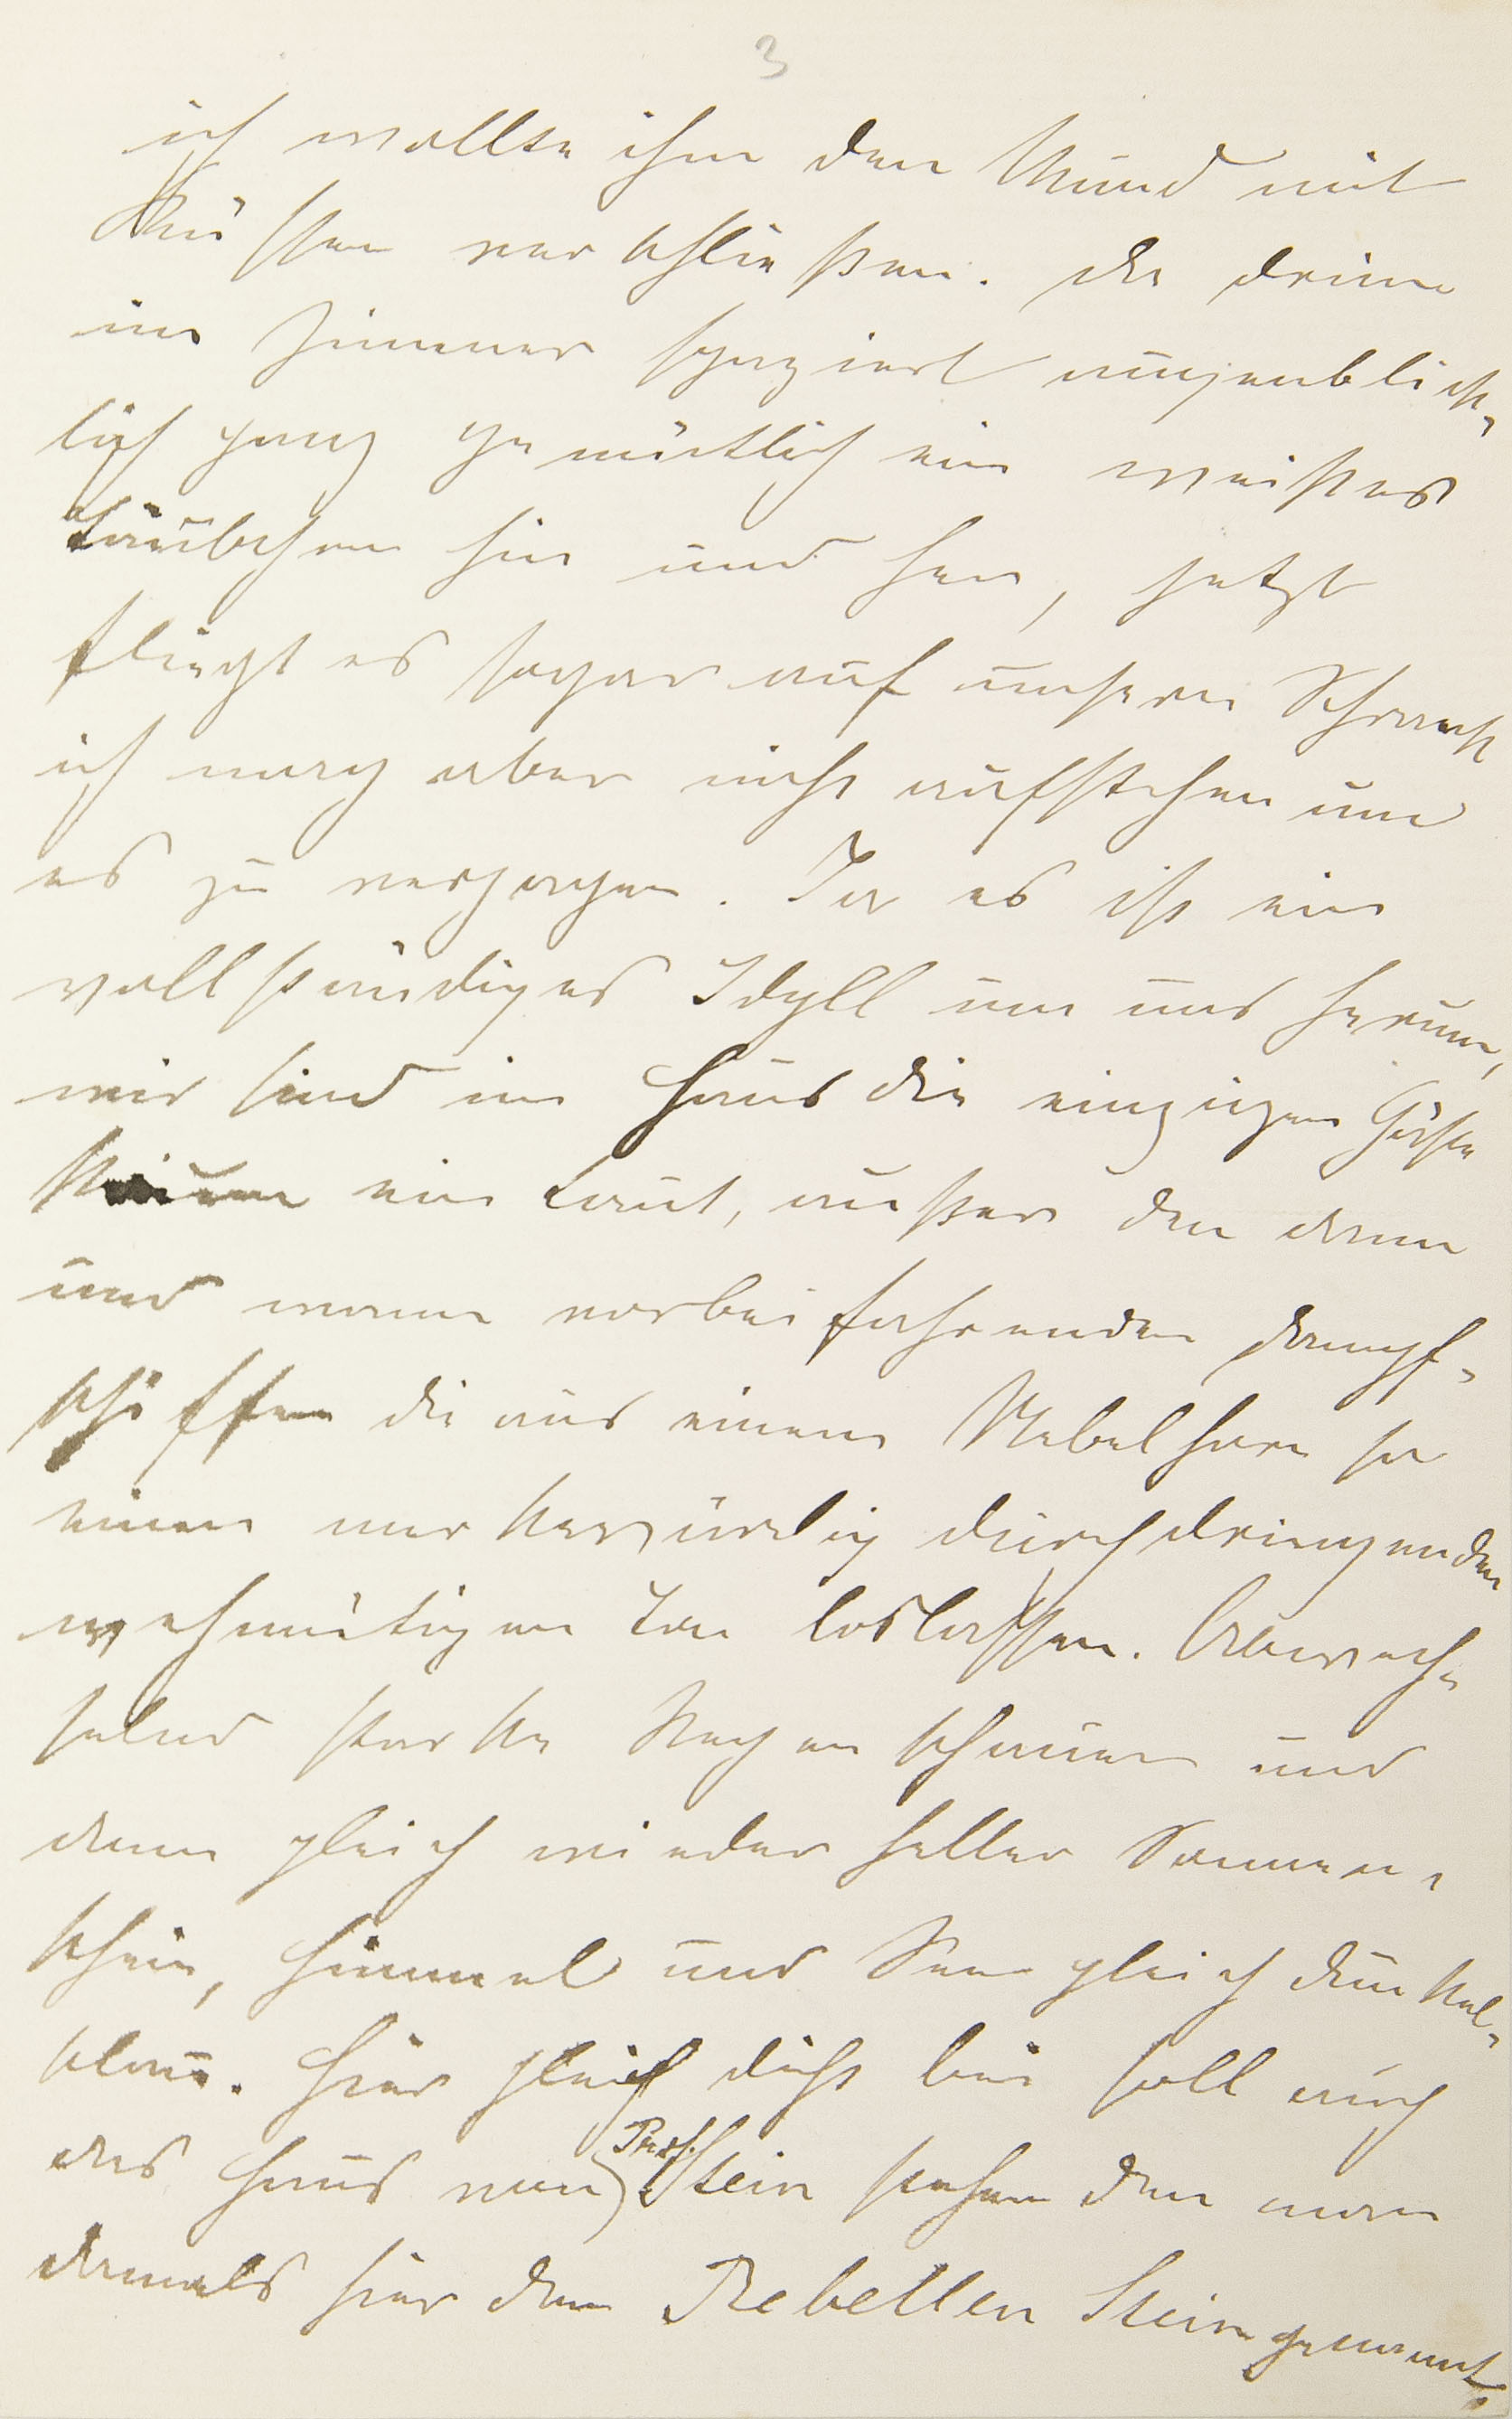 3
ich wollte ihm den Mund mit
Küssen verschließen. Da drin
im Zimmer spaziert augenblick-
lich ganz gemütlich ein weißes
Täubchen hin und her, jetzt
fliegt es sogar auf unseren Schrank
ich mag aber nicht aufstehen um
es zu verjagen. Ja es ist ein
vollständiges Idyll um uns herum,
wir sind im Haus die einzigen Gäste
kaum ein Laut, außer den dann
und wann vorbeifahrenden Dampf-
schiffen die aus einem Nebelhorn so
einen merkwürdig durchdringenden
wehmütigen Ton loslassen. Abwech-
selnd starke Regenschauer und
dann gleich wieder heller Sonnen-
schein, Himmel und See gleich dunkel-
blau. Hier gleich dicht bei soll auch
das Haus von Prof. Stein stehen den man
damals hier den Rebellen Stein genannt,